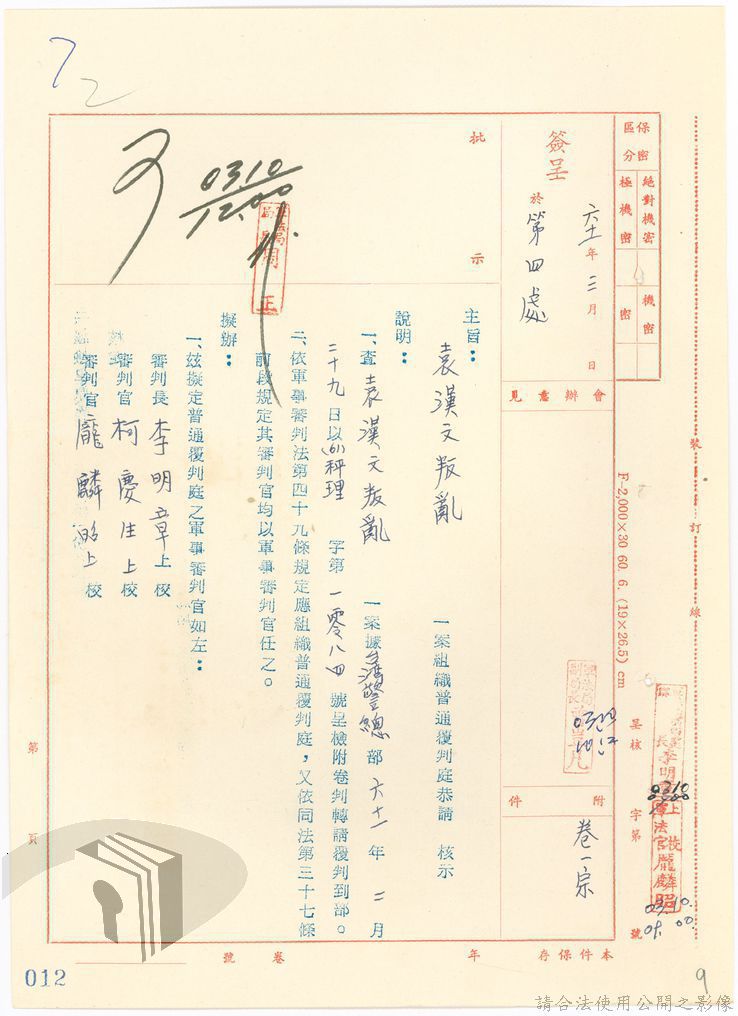 72
保密區分
絕對機密
極機密
機密
密
簽呈
六十一年三月 日
於第四處
會辦意見
批示
可
0310
1200
主旨：
袁漢文叛亂一案組織普通覆判庭恭請 核示
說明：
一、查袁漢文叛亂一案據台灣警總部六十一年二月
二十九日以(61)秤理字第一零八四號呈檢附卷判轉請覆判到部。
二、依軍事審判法第四十九條規定應組織普通覆判庭，又依同法第三十七條
前段規定其審判官均以軍事審判官任之。
擬辦：
一、茲擬定普通覆判庭之軍事審判官如左：
審判長 李明章上校
審判官 柯慶生上校
審判官 龐麟昭上校
附件
卷一宗
裝訂線
F-2,000×30 60. 6. (19×26.5) cm
呈核
字第
號
軍法官龐麟照
0310
0310.
09.00.
本件保存 年
卷 號
第 頁
012
9
請合法使用公開之影像